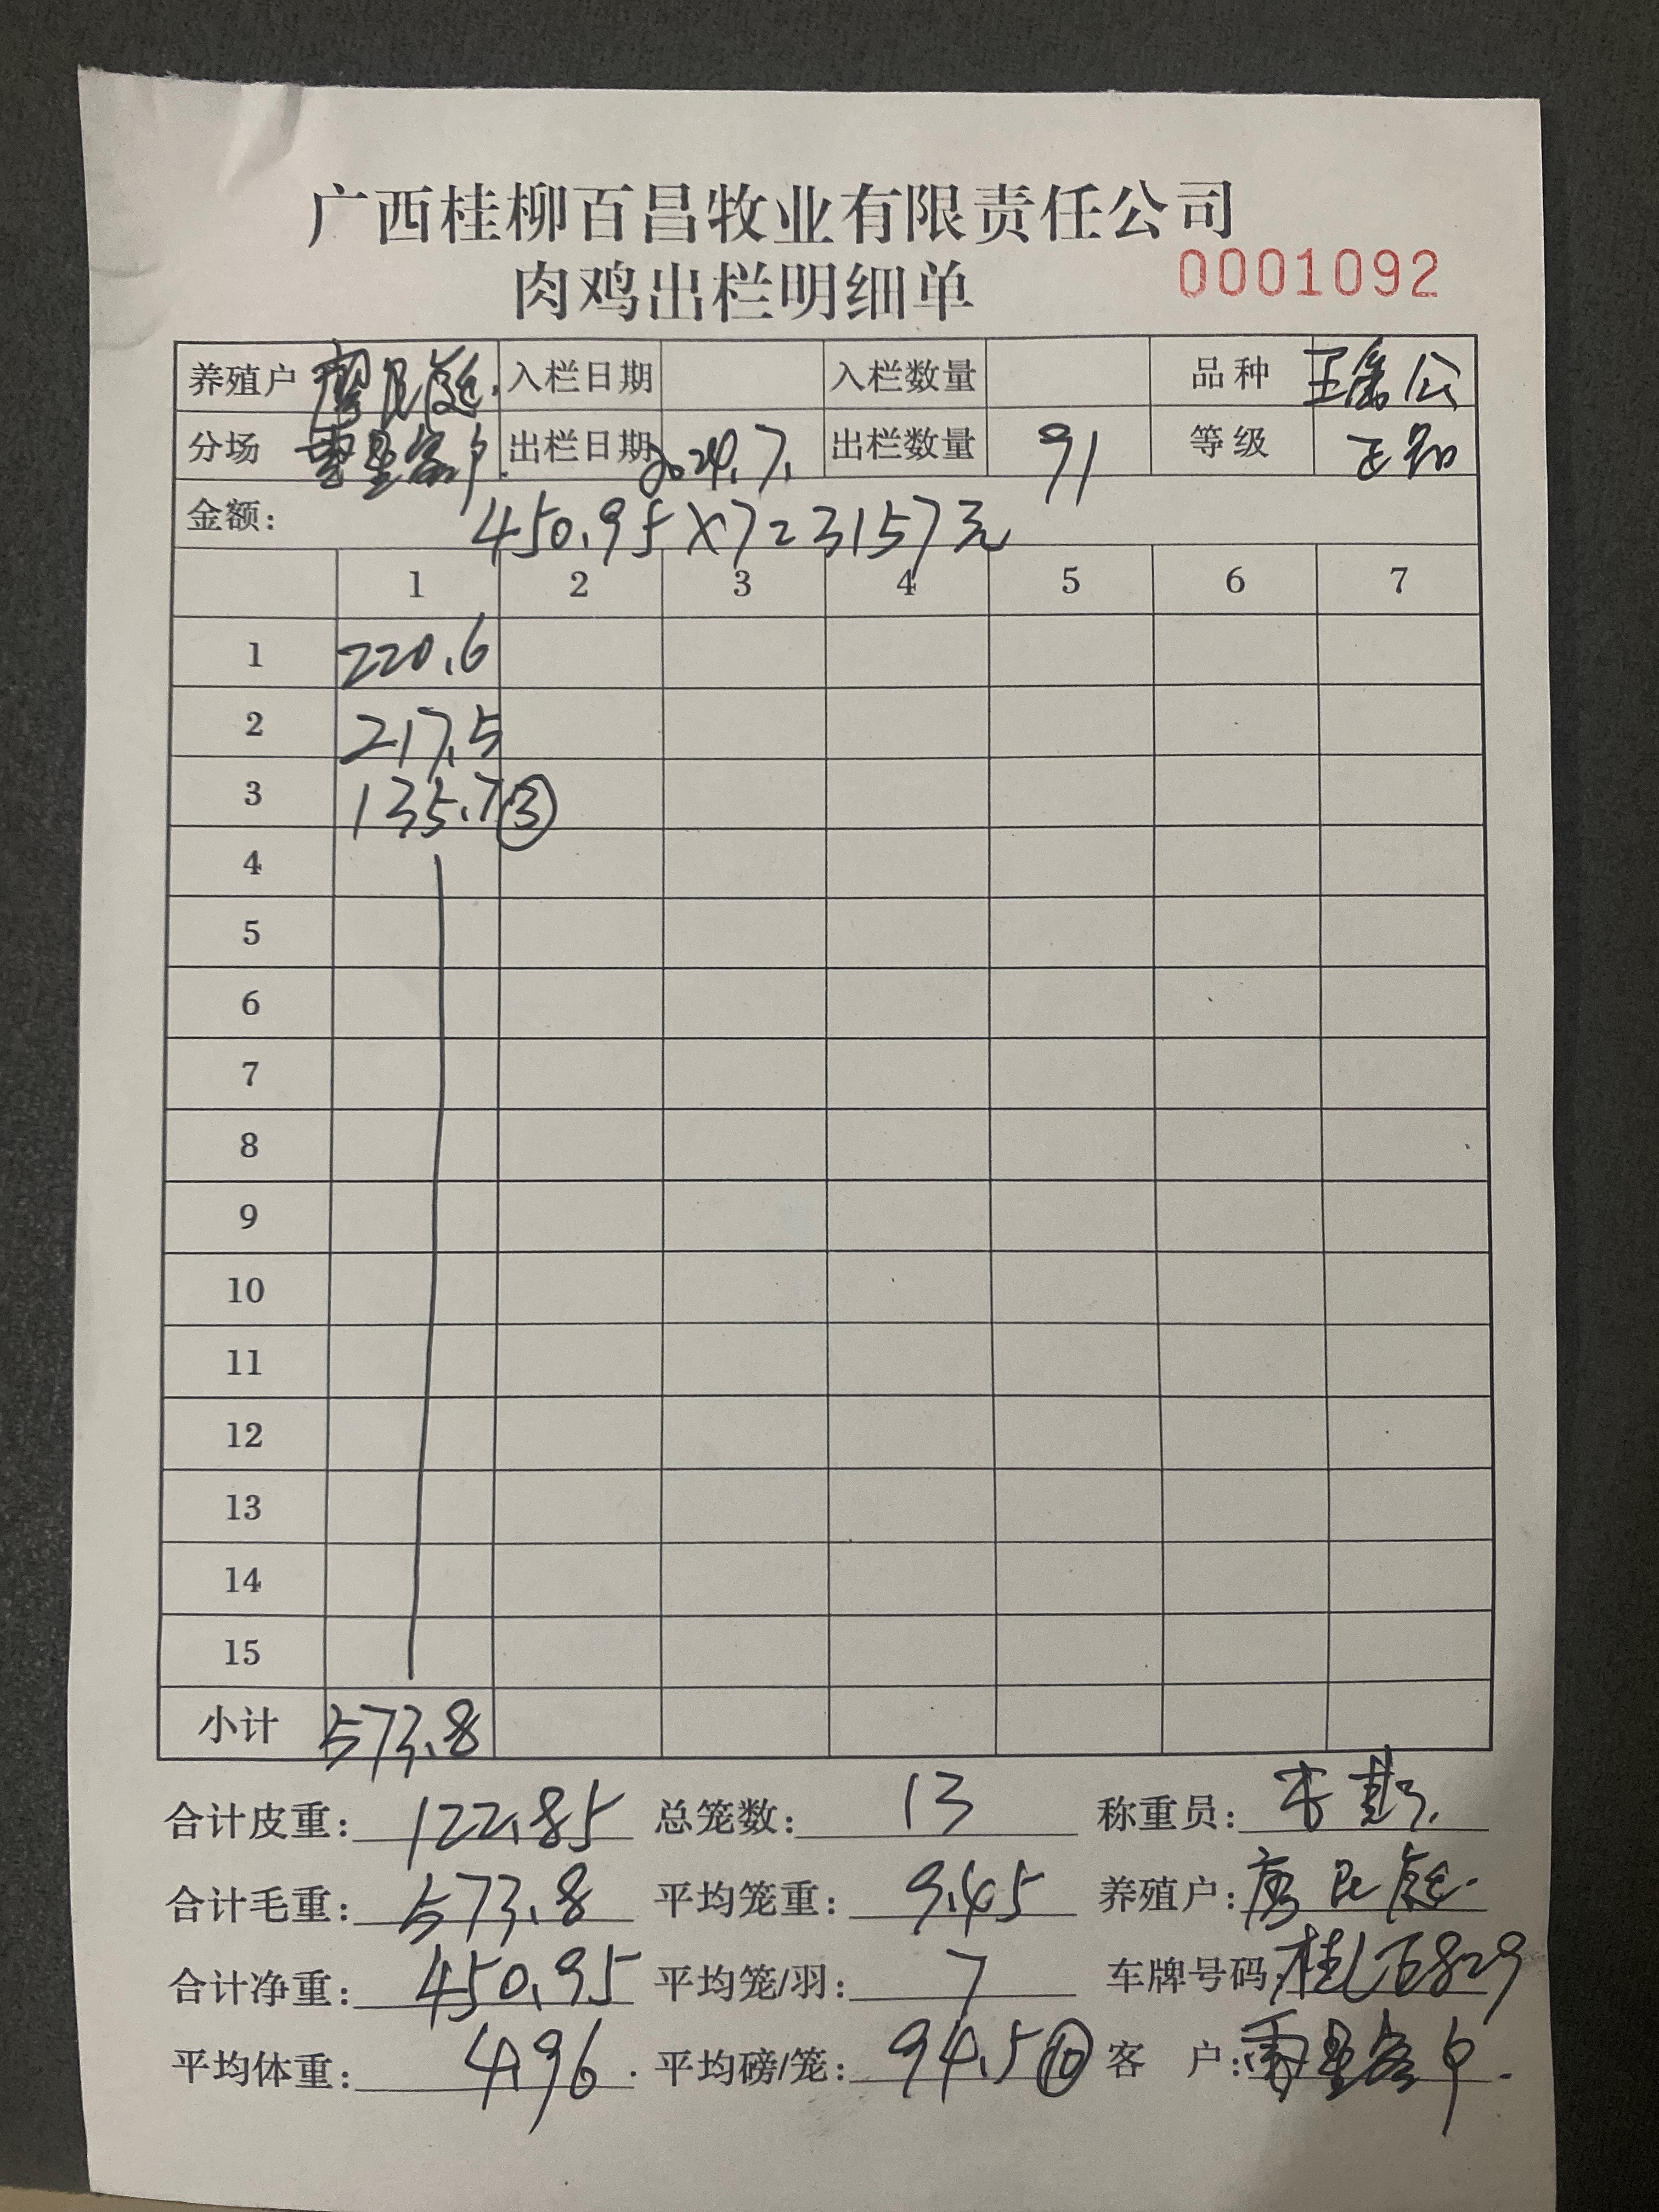 广西桂柳百昌牧业有限责任公司
肉鸡出栏明细单 0001092
养殖户 入栏日期 入栏数量 品种 公
分场 零星客户 出栏日期 2024.7. 出栏数量 91 等级 正品
金额: 450.95×7=3157元
1 2 3 4 5 6 7
1 220.6
2 217.5
3 135.7 ③
4
5
6
7
8
9
10
11
12
13
14
15
小计 573.8
合计皮重: 122.85 总笼数: 13 称重员:
合计毛重: 573.8 平均笼重: 9.45 养殖户:
合计净重: 450.95 平均笼/羽: 7 车牌号码:
平均体重: 4.96 平均磅/笼: 94.5 ⑩ 客 户: 零星客户